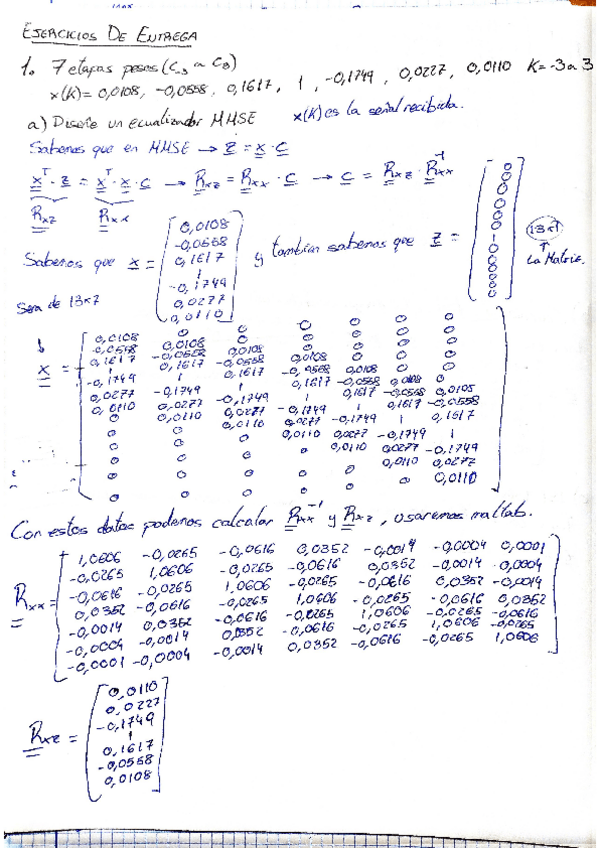 EJERCICIOS DE ENTREGA
1. 7 etapas pesos (C-3 a C3)
x(k) = 0,0108, -0,0558, 0,1617, 1, -0,1749, 0,0227, 0,0110 K=-3 a 3
a) Diseñe un ecualizador MMSE x(k) es la señal recibida.
Sabemos que en MMSE → z = x · c
x^T · z = x^T · x · c → Rxz = Rxx · c → c = Rxz · Rxx^-1
Rxz Rxx
Sabemos que x = [0,0108 -0,0558 0,1617 1 -0,1749 0,0277 0,0110] y tambien sabemos que z = [0 0 0 0 0 0 1 0 0 0 0 0 0] 13x1
La Matriz
Sera de 13x7
x =
0,0108 0 0 0 0 0 0
-0,0558 0,0108 0 0 0 0 0
0,1617 -0,0558 0,0108 0 0 0 0
1 0,1617 -0,0558 0,0108 0 0 0
-0,1749 1 0,1617 -0,0558 0,0108 0 0
0,0277 -0,1749 1 0,1617 -0,0558 0,0108 0
0,0110 0,0277 -0,1749 1 0,1617 -0,0558 0,0108
0 0,0110 0,0277 -0,1749 1 0,1617 -0,0558
0 0 0,0110 0,0277 -0,1749 1 0,1617
0 0 0 0,0110 0,0277 -0,1749 1
0 0 0 0 0,0110 0,0277 -0,1749
0 0 0 0 0 0,0110 0,0277
0 0 0 0 0 0 0,0110
Con estos datos podemos calcular Rxx^-1 y Rxz, usaremos matlab.
Rxx =
1,0606 -0,0265 -0,0616 0,0352 -0,0014 -0,0004 0,0001
-0,0265 1,0606 -0,0265 -0,0616 0,0352 -0,0014 -0,0004
-0,0616 -0,0265 1,0606 -0,0265 -0,0616 0,0352 -0,0014
0,0352 -0,0616 -0,0265 1,0606 -0,0265 -0,0616 0,0352
-0,0014 0,0352 -0,0616 -0,0265 1,0606 -0,0265 -0,0616
-0,0004 -0,0014 0,0352 -0,0616 -0,0265 1,0606 -0,0265
-0,0001 -0,0004 -0,0014 0,0352 -0,0616 -0,0265 1,0606
Rxz =
0,0110
0,0227
-0,1749
1
0,1617
-0,0558
0,0108